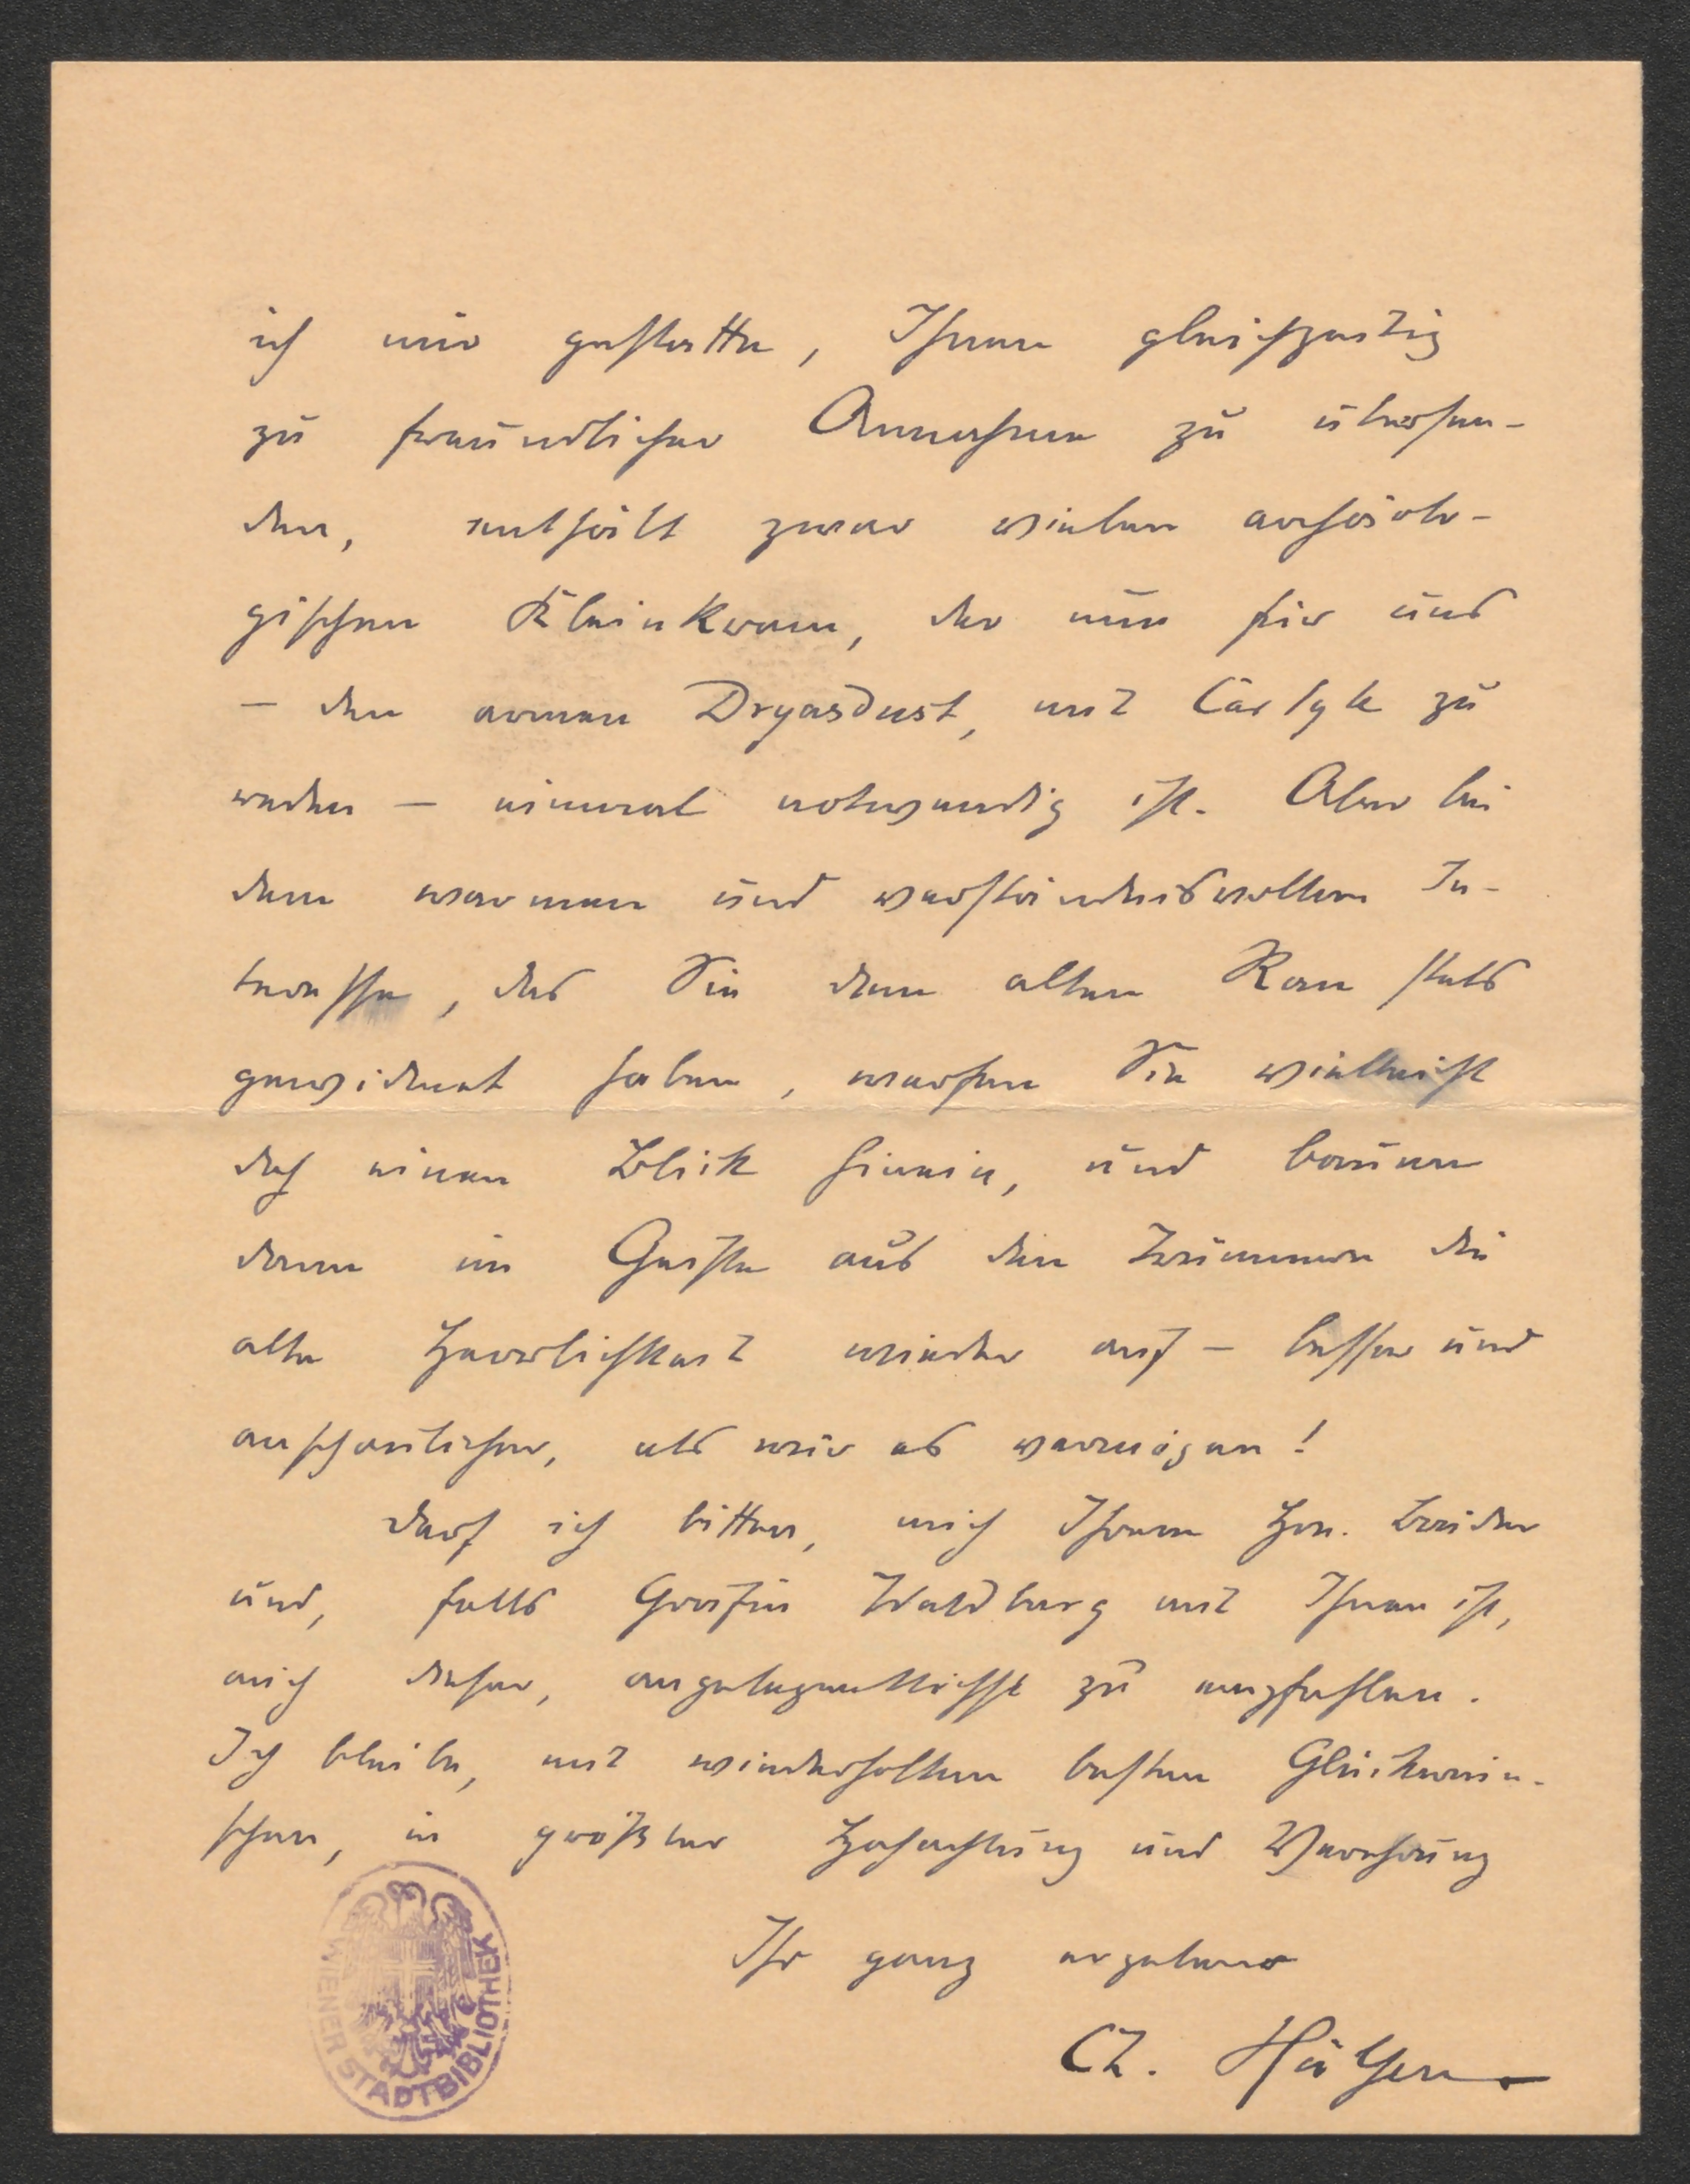 ich mir gestatte, Ihnen gleichzeitig
zu freundlicher Annahme zu übersen-
den, enthält zwar vielen archäolo-
gischen Kleinkram, der nun für uns
— den armen Dryasdust, mit Carlyle zu
reden — einmal notwendig ist. Aber bei
dem warmen und verständnisvollen In-
teresse, das Sie dem alten Rom stets
gewidmet haben, werfen Sie vielleicht
doch einen Blick hinein, und bauen
dann im Geiste aus den Trümmern die
alte Herrlichkeit wieder auf — besser und
anschaulicher, als wir es vermögen!
Darf ich bitten, mich Ihrem Hrn. Bruder
und, falls Gräfin Waldburg mit Ihnen ist,
auch dieser, angelegentlichst zu empfehlen.
Ich bleibe, mit wiederholten besten Glückwün-
schen, in größter Hochachtung und Verehrung
Ihr ganz ergebener
Ch. Hülsen
WIENER STADTBIBLIOTHEK